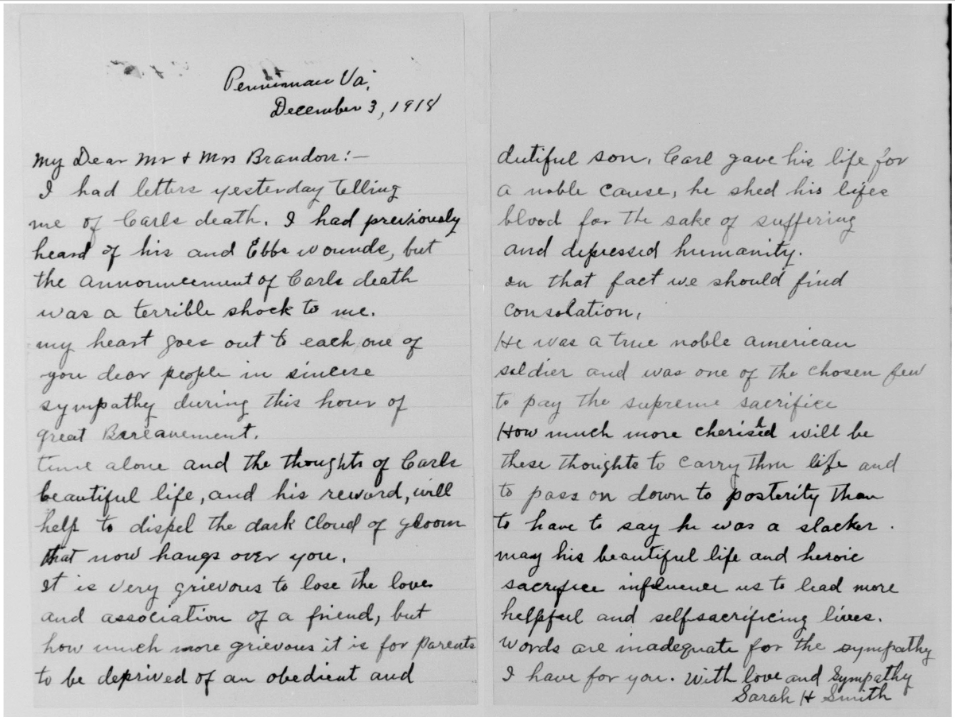 Penniman Va,
December 3, 1918
My Dear Mr & Mrs Brandon:-
I had letters yesterday telling
me of Carls death. I had previously
heard of his and Ebbs wounds, but
the announcement of Carls death
was a terrible shock to me.
my heart goes out to each one of
you dear people in sincere
sympathy during this hour of
great Bereavement.
time alone and the thoughts of Carls
beautiful life, and his reward, will
help to dispel the dark cloud of gloom
that now hangs over you.
It is very grievous to lose the love
and association of a friend, but
how much more grievous it is for parents
to be deprived of an obedient and
dutiful son. Carl gave his life for
a noble cause, he shed his lifes
blood for the sake of suffering
and depressed humanity.
in that fact we should find
consolation,
He was a true noble american
soldier and was one of the chosen few
to pay the supreme sacrifice
How much more cherished will be
these thoughts to carry thru life and
to pass on down to posterity than
to have to say he was a slacker.
may his beautiful life and heroic
sacrifice influence us to lead more
helpful and self-sacrificing lives.
words are inadequate for the sympathy
I have for you. With love and Sympathy
Sarah H Smith